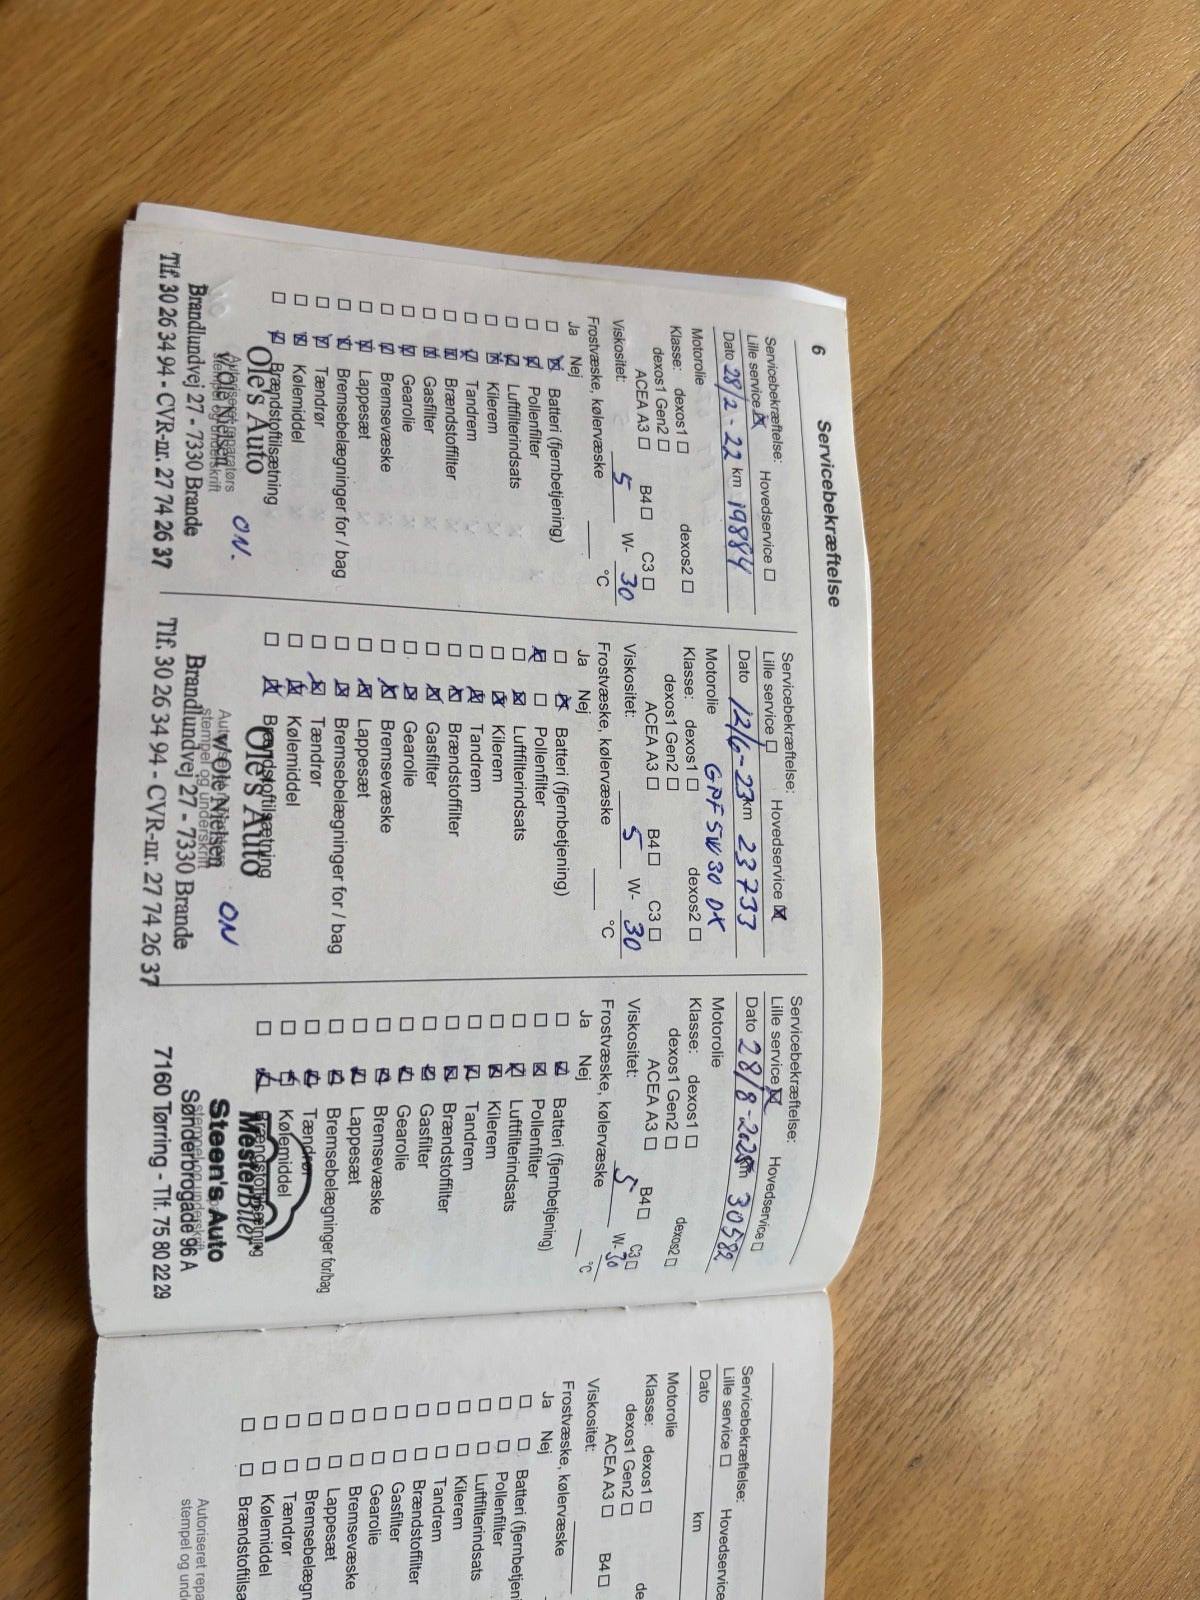 6
Servicebekræftelse
Servicebekræftelse:
Lille service ☒ Hovedservice ☐
Dato 28/2-22 km 19884
Motorolie
Klasse: dexos1 ☐ dexos2 ☐
dexos1 Gen2 ☐
ACEA A3 ☐ B4 ☐ C3 ☐
Viskositet: 5 W- 30
Frostvæske, kølervæske ___ °C
Ja Nej
☐ ☒ Batteri (fjernbetjening)
☐ ☒ Pollenfilter
☐ ☒ Luftfilterindsats
☐ ☒ Kilerem
☐ ☒ Tandrem
☐ ☒ Brændstoffilter
☐ ☒ Gasfilter
☐ ☒ Gearolie
☐ ☒ Bremsevæske
☐ ☒ Lappesæt
☐ ☒ Bremsebelægninger for / bag
☐ ☒ Tændrør
☐ ☒ Kølemiddel
☐ ☒ Brændstoftilsætning
Ole's Auto
v/Ole Nielsen ON.
stempel og underskrift
Brandlundvej 27 - 7330 Brande
Tlf. 30 26 34 94 - CVR-nr. 27 74 26 37
Servicebekræftelse:
Lille service ☐ Hovedservice ☒
Dato 12/6-23 km 23733
Motorolie GPF 5W30 DX
Klasse: dexos1 ☐ dexos2 ☐
dexos1 Gen2 ☐
ACEA A3 ☐ B4 ☐ C3 ☐
Viskositet: 5 W- 30
Frostvæske, kølervæske ___ °C
Ja Nej
☐ ☒ Batteri (fjernbetjening)
☒ ☐ Pollenfilter
☐ ☒ Luftfilterindsats
☐ ☒ Kilerem
☐ ☒ Tandrem
☐ ☒ Brændstoffilter
☐ ☒ Gasfilter
☐ ☒ Gearolie
☐ ☒ Bremsevæske
☐ ☒ Lappesæt
☐ ☒ Bremsebelægninger for / bag
☐ ☒ Tændrør
☐ ☒ Kølemiddel
☐ ☒ Brændstoftilsætning
Ole's Auto
v/Ole Nielsen ON
stempel og underskrift
Brandlundvej 27 - 7330 Brande
Tlf. 30 26 34 94 - CVR-nr. 27 74 26 37
Servicebekræftelse:
Lille service ☒ Hovedservice ☐
Dato 28/8-2025 km 30582
Motorolie
Klasse: dexos1 ☐ dexos2 ☐
dexos1 Gen2 ☐
ACEA A3 ☐ B4 ☐ C3 ☐
Viskositet: 5 W- 30
Frostvæske, kølervæske ___ °C
Ja Nej
☐ ☒ Batteri (fjernbetjening)
☐ ☒ Pollenfilter
☐ ☒ Luftfilterindsats
☐ ☒ Kilerem
☐ ☒ Tandrem
☐ ☒ Brændstoffilter
☐ ☒ Gasfilter
☐ ☒ Gearolie
☐ ☒ Bremsevæske
☐ ☒ Lappesæt
☐ ☒ Bremsebelægninger for/bag
☐ ☒ Tændrør
☐ ☒ Kølemiddel
☐ ☒ Brændstoftilsætning
MesterBiler
Steen's Auto
stempel og underskrift
Sønderbrogade 96 A
7160 Tørring - Tlf. 75 80 22 29
Servicebekræftelse:
Lille service ☐ Hovedservice
Dato km
Motorolie
Klasse: dexos1 ☐ de
dexos1 Gen2 ☐
ACEA A3 ☐ B4 ☐
Viskositet:
Frostvæske, kølervæske
Ja Nej
☐ ☐ Batteri (fjernbetjen
☐ ☐ Pollenfilter
☐ ☐ Luftfilterindsats
☐ ☐ Kilerem
☐ ☐ Tandrem
☐ ☐ Brændstoffilter
☐ ☐ Gasfilter
☐ ☐ Gearolie
☐ ☐ Bremsevæske
☐ ☐ Lappesæt
☐ ☐ Bremsebelægn
☐ ☐ Tændrør
☐ ☐ Kølemiddel
☐ ☐ Brændstoftilsa
Autoriseret repa
stempel og unde